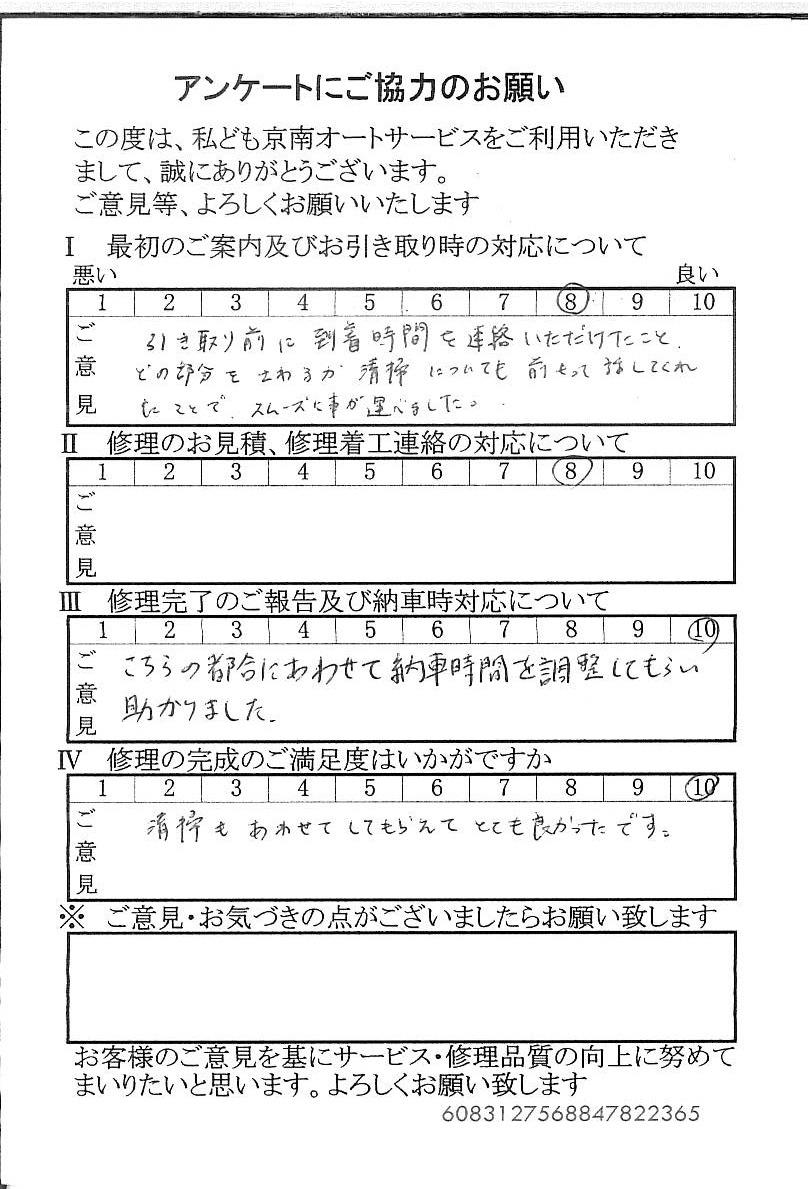 アンケートにご協力のお願い
この度は、私ども京南オートサービスをご利用いただき
まして、誠にありがとうございます。
ご意見等、よろしくお願いいたします
Ⅰ 最初のご案内及びお引き取り時の対応について
悪い 良い
1 2 3 4 5 6 7 8 9 10
ご意見
引き取り前に到着時間を連絡いただけたこと、
どの部分をさわるか清掃についても前もって話してくれ
たことで、スムーズに事が運べました。
Ⅱ 修理のお見積、修理着工連絡の対応について
1 2 3 4 5 6 7 8 9 10
ご意見
Ⅲ 修理完了のご報告及び納車時対応について
1 2 3 4 5 6 7 8 9 10
ご意見
こちらの都合にあわせて納車時間を調整してもらい
助かりました。
Ⅳ 修理の完成のご満足度はいかがですか
1 2 3 4 5 6 7 8 9 10
ご意見
清掃もあわせてしてもらえてとても良かったです。
※ ご意見・お気づきの点がございましたらお願い致します
お客様のご意見を基にサービス・修理品質の向上に努めて
まいりたいと思います。よろしくお願い致します
6083127568847822365